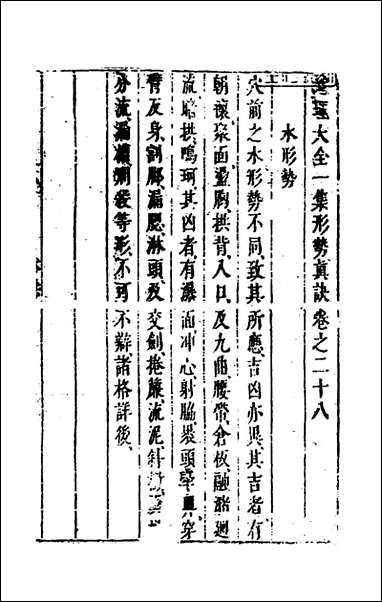 地理大全一集形勢真訣卷之二十八
水形勢
穴前之水形勢不同致其所應吉凶亦異其吉者有
朝懷眾面盪胸拱背入口及九曲腰帶倉板融瀦迴
流暗拱鳴珂其凶者有瀑面冲心射脇裹頭牽鼻穿
臂反身割腳漏腮淋頭及交劍捲簾流泥斜
分流漏不可不辯諸格詳後